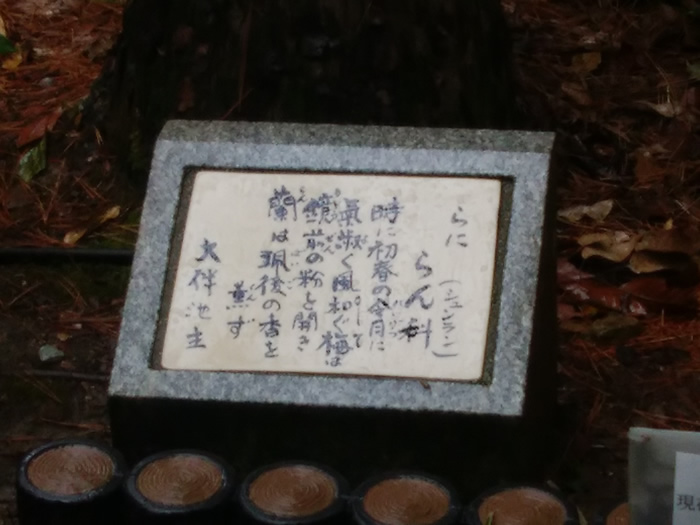 らに
らん科（シュンラン）
時に初春の令月に
氣淑く風和ぐ梅は
鏡前の粉を開き
蘭は珮後の香を
薫ず
大伴池主
現